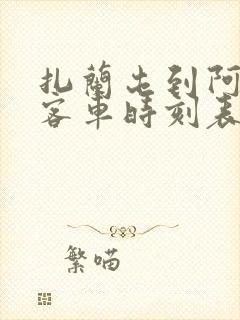 扎蘭屯到阿
客車時刻表
繁喵